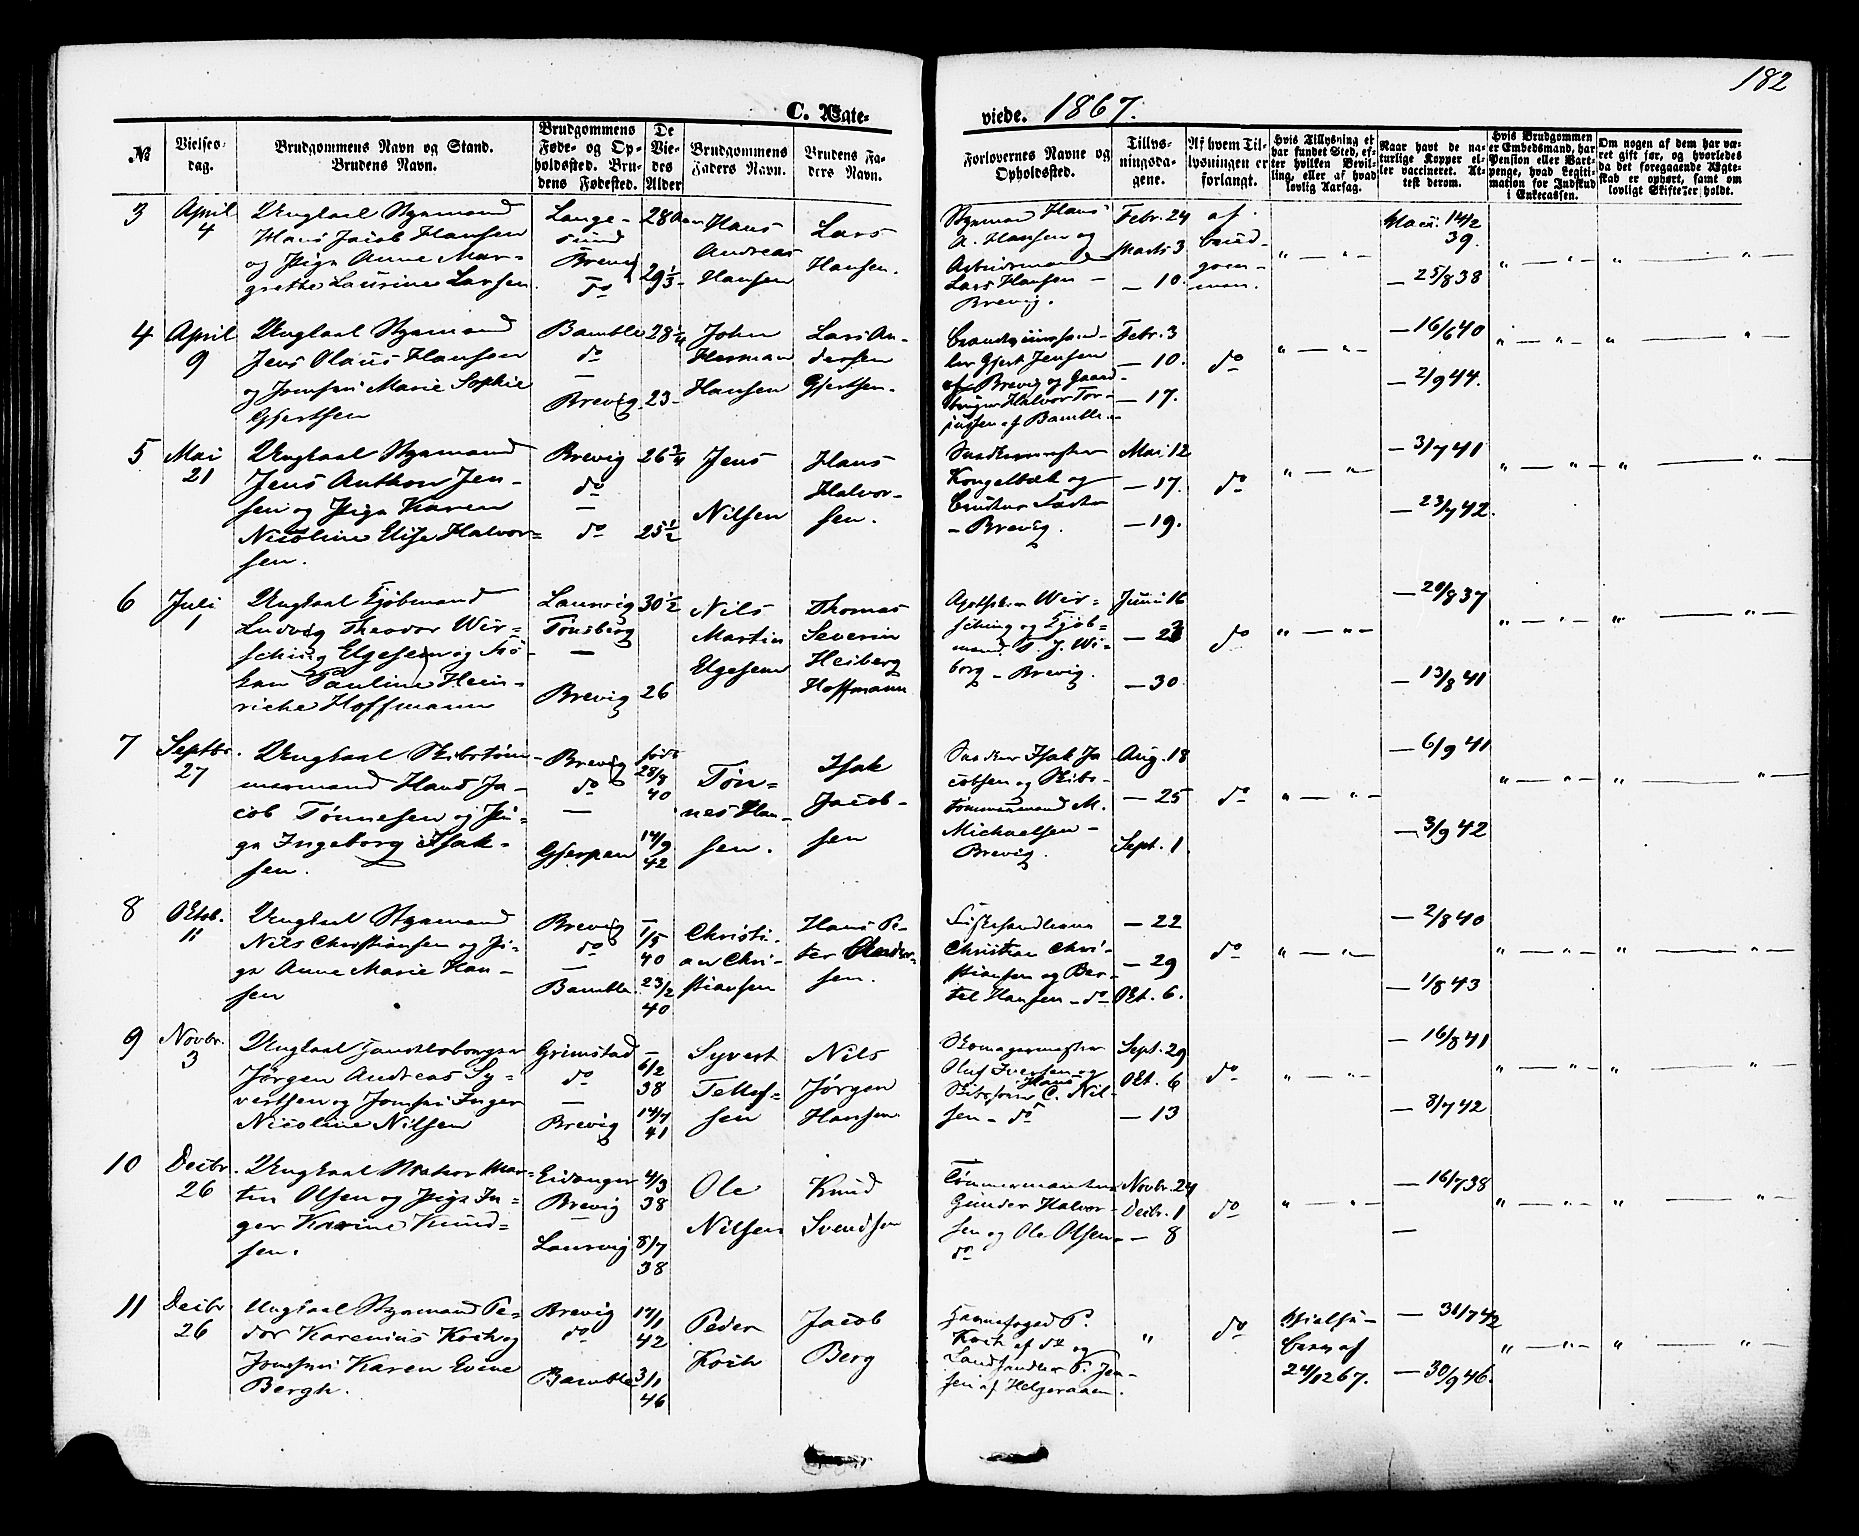 182
C. Ægte-
viede. 1867.
№
Vielses-
dag.
Brudgommens Navn og Stand.
Brudens Navn.
Brudgommens
Føde- og Op-
holdssted. Bru-
dens Fødested.
De
Vie-
des
Alder
Brudgommens
Faders Navn.
Brudens Fa-
ders Navn.
Forlovernes Navne og
Opholdssted.
Tillys-
ningsda-
gene.
Af hvem Til-
lysningen er
forlangt.
Hvis Tillysning ei
har fundet Sted, ef-
ter hvilken Bevil-
ling, eller af hvad
lovlig Aarsag.
Naar havt de na-
turlige Kopper el-
ler vaccineret. At-
test derom.
Hvis Brudgommen
er Embedsmand, har
Pension eller Vart-
penge, hvad Legiti-
mation for Indskud
i Enkecassen.
Om nogen af dem har væ-
ret gift før, og hvorledes
da det foregaaende Ægte-
skab er ophørt, samt om
lovligt Skifte er holdt.
3
April
4
Ungkarl Styrmand
Hans Jacob Hansen
og Pige Anne Mar-
grethe Laurine Larsen
Lange-
sund
Brevig
do
28 Aar
29 1/3 -
Hans
Andreas
Hansen
Lars
Hansen.
Styrmand Hans
A. Hansen og
Arbeidsmand
Lars Hansen -
Brevig.
Febr. 24
Marts 3
— 10.
af
brud-
gom-
men.
" — " —
Vacc. 14/2
39.
— 25/8 38
" — " —
" — " —
4
April
9
Ungkarl Styrmand
Jens Olaus Hansen
og Jomfru Marie Sophie
Gjertsen
Bamble
do
—
Brevig
28 1/4
23 -
John
Herman
Hansen
Lars An-
dersen
Gjertsen.
Gjert Jensen
af Brevig og Gaard-
bruger Halvor Tor-
jussen af Bamble
Febr. 3
— 10.
— 17.
do
" — " —
— 16/6 40
— 2/9 44.
" — " —
" — " —
5
Mai
21
Ungkarl Styrmand
Jens Anthon Jen-
sen og Pige Karen
Nicoline Elise Halvor-
sen.
Brevig
do
—
do
26 3/4
25 1/2
Jens
Nilsen
Hans
Halvor-
sen.
Kongelbæk og
- Brevig.
Mai 12
— 17.
— 19.
do
" — " —
— 3/7 41
— 23/7 42.
" — " —
" — " —
6
Juli
1
Ungkarl Kjøbmand
Ludvig Theodor Wir-
sching Elgesem og Frø-
ken Pauline Hein-
riche Hoffmann
Laurvig
Tønsberg
—
Brevig
30 1/2
26
Nils
Martin
Elgesem
Thomas
Severin
Heiberg
Hoffmann
Apotheker Wir-
sching og Kjøb-
mand T. J. Wi-
borg - Brevig.
Juni 16
— 23
— 30
do
" — " —
— 20/8 37
— 13/8 41
" — " —
" — " —
7
Septbr.
27
Ungkarl Skibstøm-
mermand Hans Ja-
cob Tønnesen og Pi-
ge Ingeborg Isak-
sen.
Brevig
do
—
Gjerpen
født
28/8
40
14/9
42
Tøn-
nes Han-
sen.
Isak
Jacob-
sen
Isak Ja-
cobsen og Skibs-
tømmermand M.
Michaelsen -
Brevig.
Aug. 18
— 25
Sept. 1
do
" — " —
— 6/9 41
— 3/9 42
" — " —
" — " —
8
Oktob.
11
Ungkarl Styrmand
Nils Christiansen og Pi-
ge Anne Marie Han-
sen
Brevig
do
—
Bamble.
1/5
40
23/2
40
Christi-
an Chri-
stiansen
Hans Pe-
ter Ander-
sen.
Fiskehandlerne
Christian Chri-
stiansen og Ber-
tel Hansen - do
— 22
— 29
Okt. 6.
do
" — " —
— 2/8 40
— 1/8 43
" — " —
" — " —
9
Novbr.
3
Ungkarl Handelsborger
Jørgen Andreas Sy-
vertsen og Jomfru Inger
Nicoline Nilsen
Grimstad
do
—
Brevig
6/2
38
14/7
41
Syvert
Tellef-
sen
Nils
Jørgen
Hansen.
Skomagermester
Oluf Iversen og
Hans
C. Nil-
sen - do
Sept. 29
Okt. 6
— 13
do
" — " —
— 16/8 41
— 8/7 42
" — " —
" — " —
10
Decbr.
26
Ungkarl Matros Mar-
tin Olsen og Pige In-
ger Karine Knud-
sen.
Eidanger
Brevig
—
Laurvig
4/3
38
8/7
38
Ole
Nilsen
Knud
Svendsen
Tømmermændene
Gunder Halvor-
sen og Ole Olsen -
do
Novbr. 24
Decbr. 1
— 8
do
" — " —
— 16/7 38
—
" — " —
" — " —
11
Decbr.
26
Ungkarl Styrmand Pe-
der Karenius Koch og
Jomfru Karen Evine
Bergh.
Brevig
do
Bamble
17/1
42
3/1
46
Peder
Koch
Jacob
Berg
Havnefoged P.
Koch af do og
Landhandler P. Jen-
sen af Helgeraaen.
"
do
brev af
24/12 67.
— 31/7 42
— 30/9 46.
" — " —
" — " —